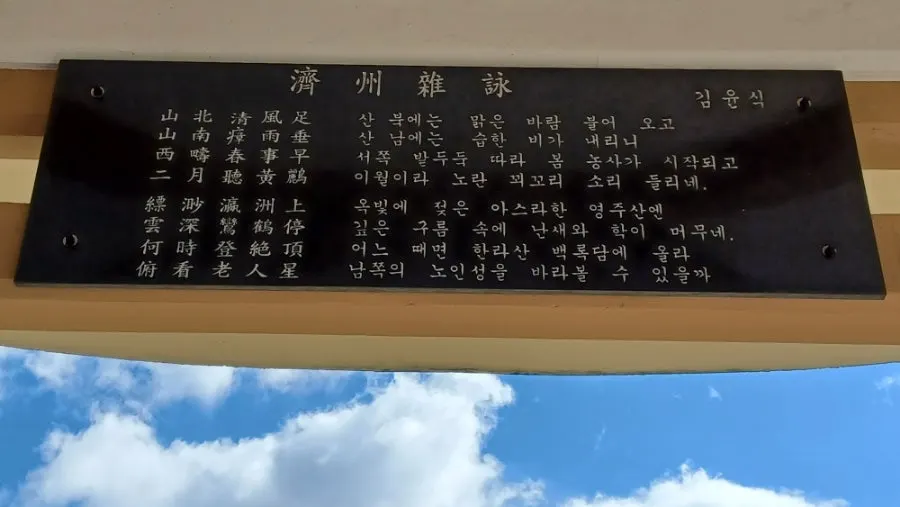 濟州雜詠
김윤식
山北清風足 산 북에는 맑은 바람 불어 오고
山南瘴雨垂 산 남에는 습한 비가 내리니
西疇春事早 서쪽 밭두둑 따라 봄 농사가 시작되고
二月聽黃鸝 이월이라 노란 꾀꼬리 소리 들리네.
縹渺瀛洲上 옥빛에 젖은 아스라한 영주산엔
雲深鸞鶴停 깊은 구름 속에 난새와 학이 머무네.
何時登絶頂 어느 때면 한라산 백록담에 올라
俯看老人星 남쪽의 노인성을 바라볼 수 있을까